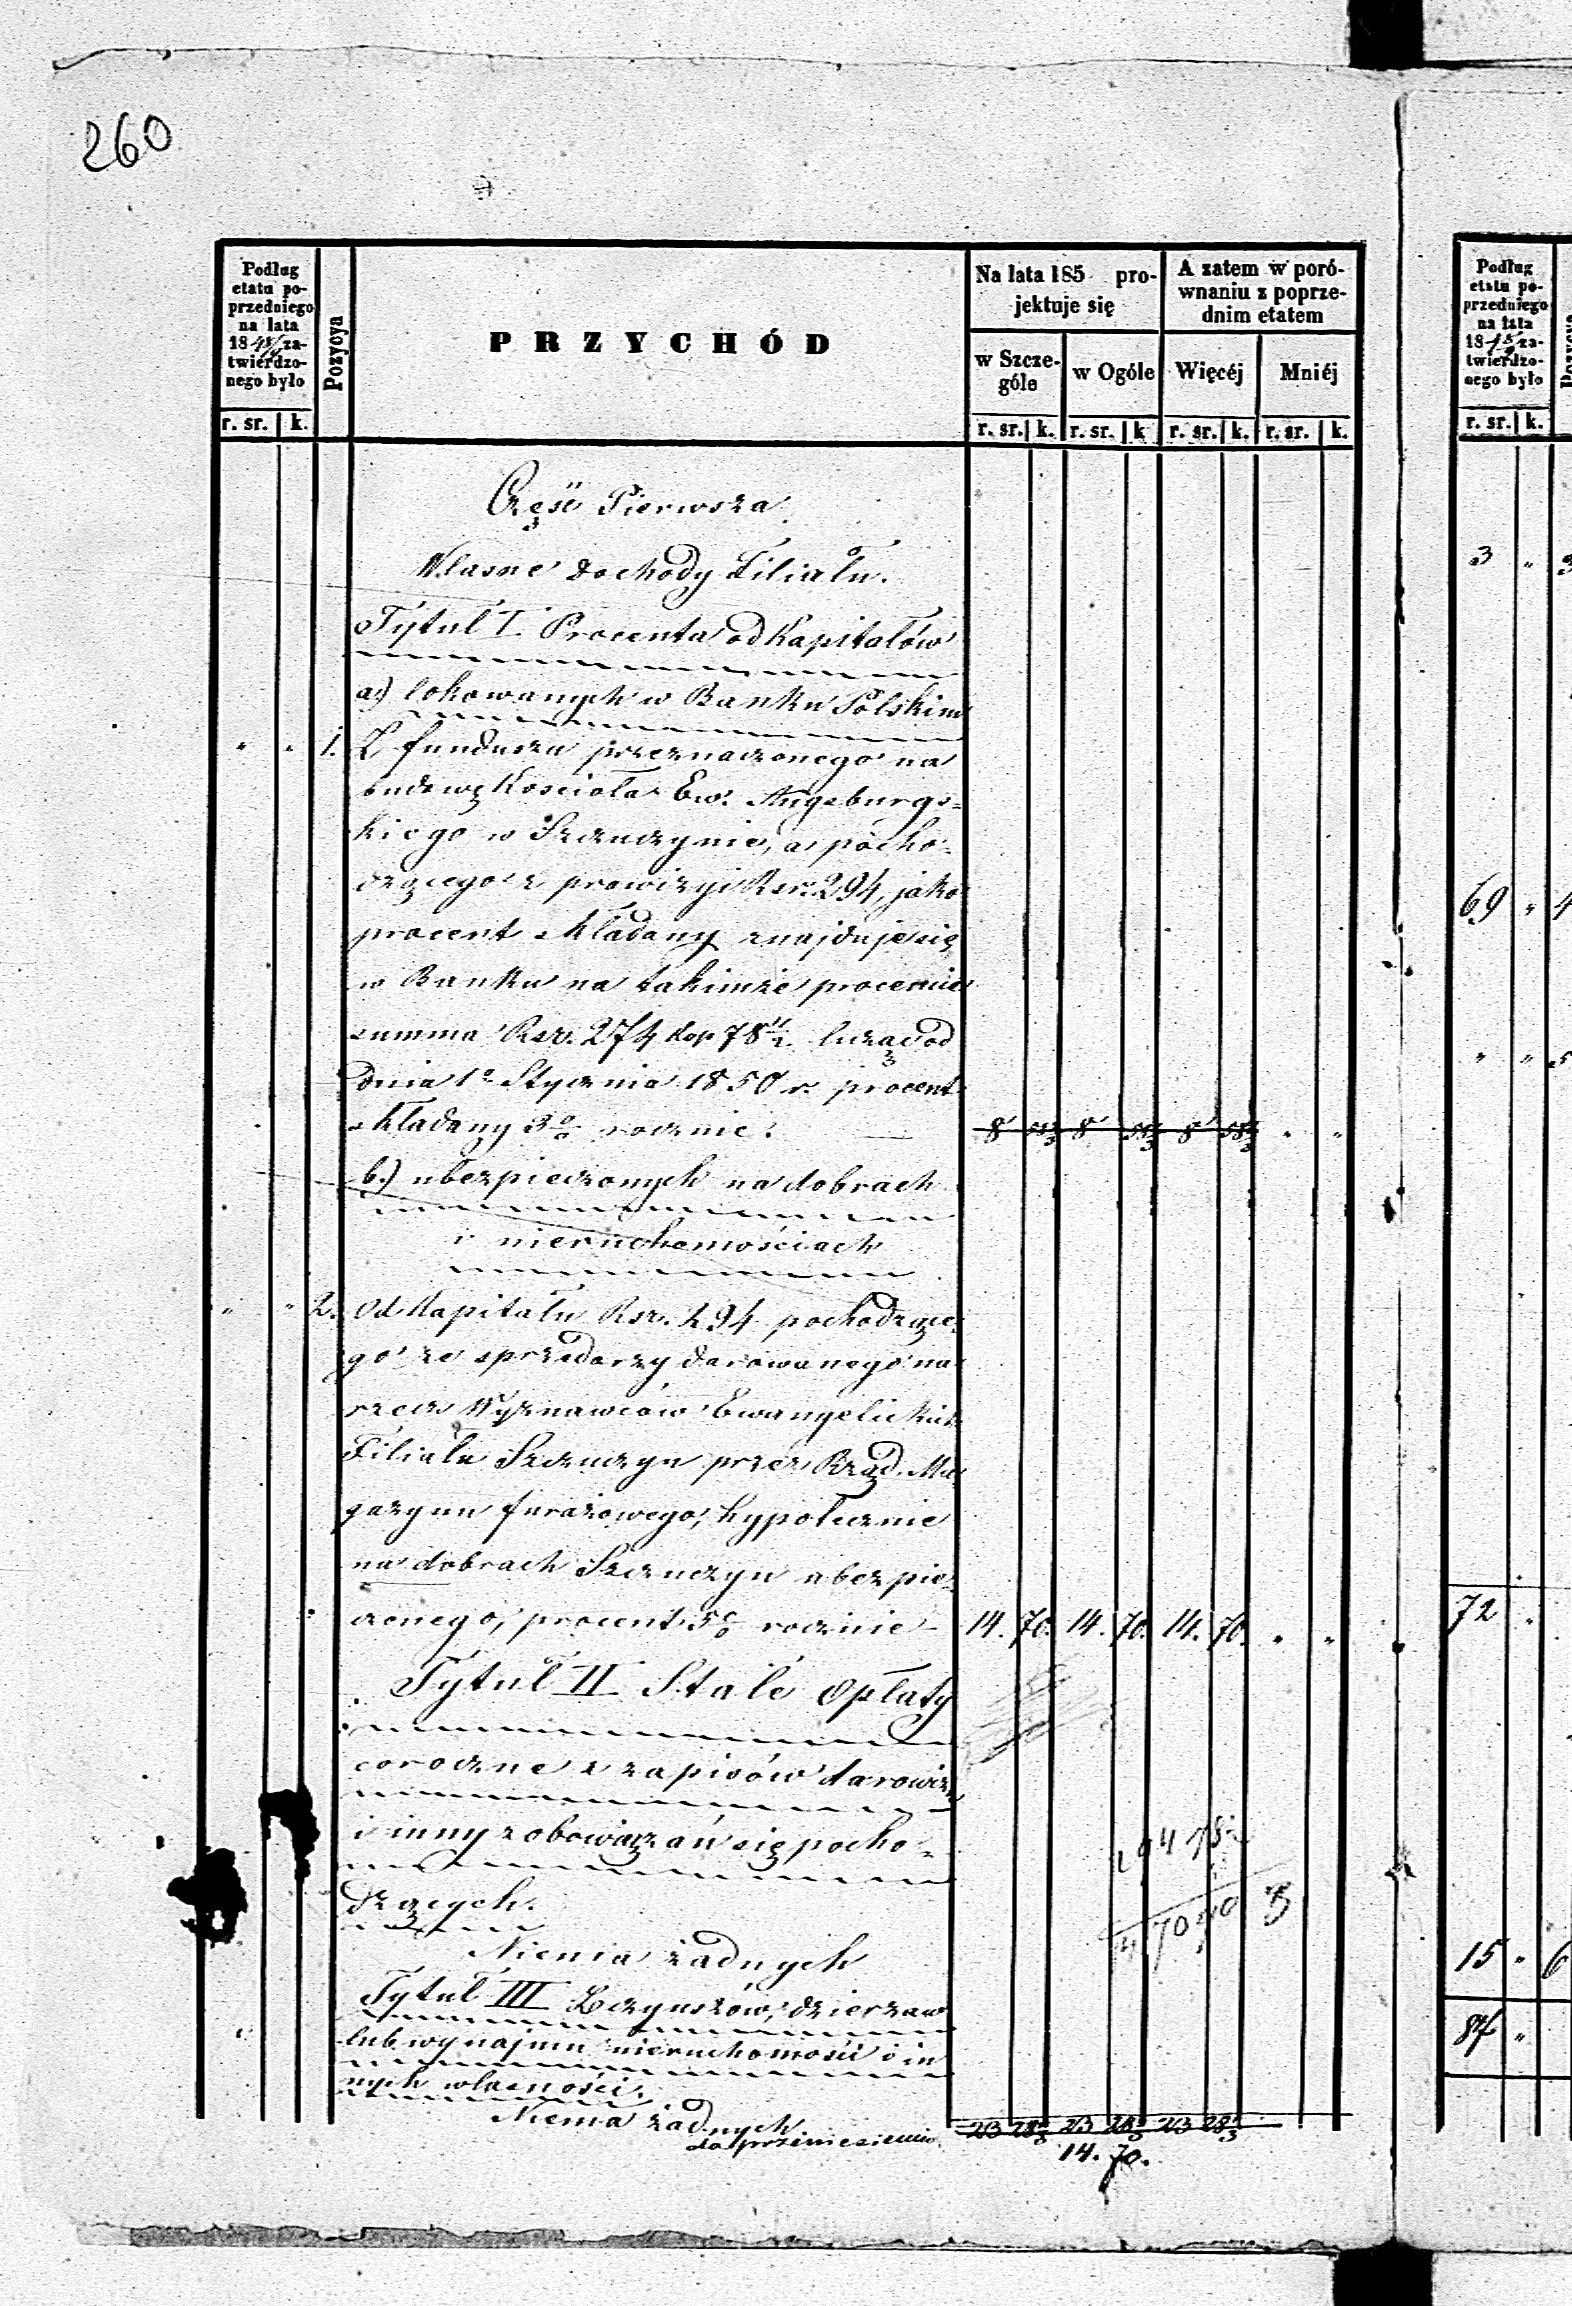 260
Podług
etatu po-
przedniego
na lata
18 za-
twierdzo-
nego było
Pozycya
PRZYCHÓD
Na lata 185 pro-
jektuje się
A zatem w poró-
wnaniu z poprze-
dnim etatem
w Szcze-
góle
w Ogóle
Więcéj
Mniéj
r. sr. k.
r. sr. k. r. sr. k r. sr. k. r. sr. k.
Część Pierwsza
Własne dochody Filiału.
Tytuł I. Procenta od Kapitałów
a) lokowanych w Banku Polskim
" " 1. Z funduszu przeznaczonego na
budowę Kościoła Ew. Augsburgs-
kiego w Szczuczynie, a pocho-
dzącego z prowizyi Rsr. 294, jako
procent składany znajduje się
w Banku na takimże procencie
summa Rsr. 274 kop 78½ licząc od
dnia 1º Stycznia 1850 r. procent
składany 3% rocznie. 8 8 8 " "
b.) ubezpieczonych na dobrach
i nieruchomościach
" " 2. Od Kapitału Rsr. 294 pochodzące-
go ze sprzedarzy darowanego na
rzecz Wyznawców Ewangelickich
Filiału Szczuczyn przez Rząd. Ma-
gazynu furażowego, hypotecznie
na dobrach Szczuczyn ubezpie-
czonego, procent 5% rocznie 14. 70. 14. 70. 14. 70. " "
Tytuł II Stałe opłaty
coroczne z zapisów darowizn
i inny zobowiązań się pocho-
dzących.
Niema żadnych
Tytuł III Z czynszów, dzierzaw
lub wynajmu nieruchomości i in
nych własności.
Niema żadnych
do przeniesienia 23 23 23
14. 70.
Podług
etatu po-
przedniego
na lata
18 za-
twierdzo-
nego było
r. sr. k.
3 "
69 " 4
" "
72 "
15 " 6
87 "